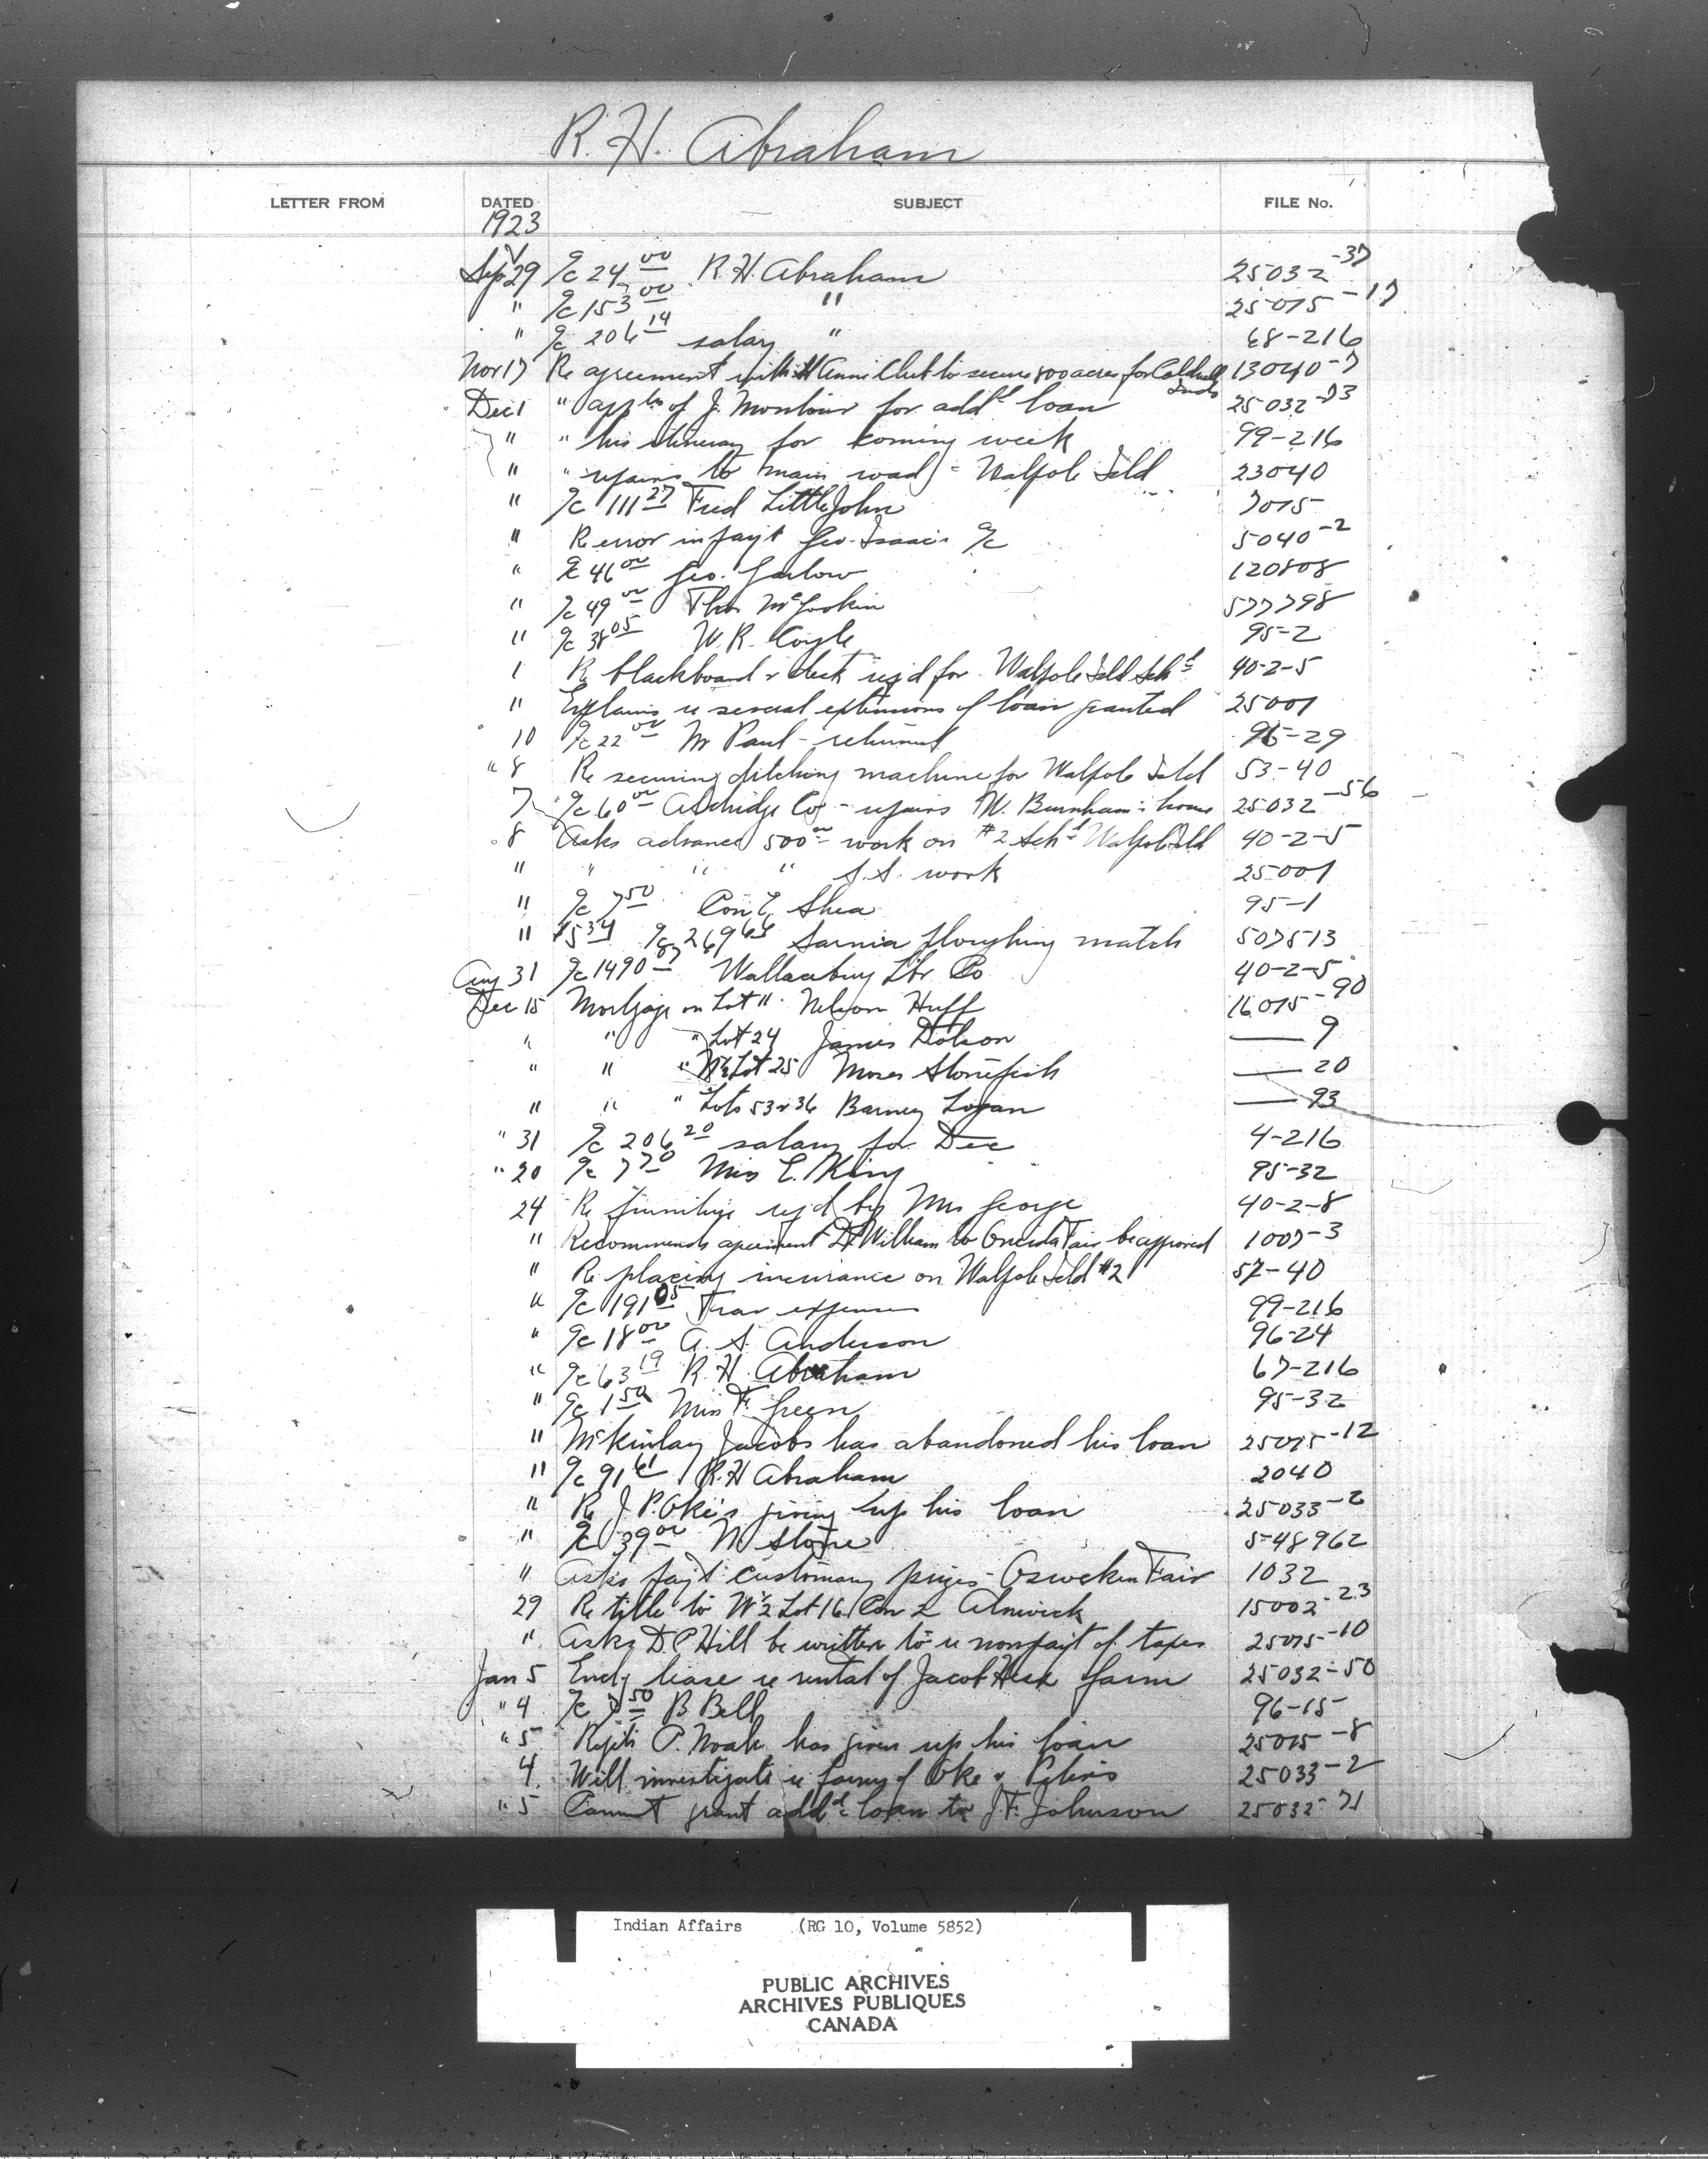 R. H. Abraham
LETTER FROM DATED SUBJECT FILE No.
1923
Sep 29 a/c 24.00 R. H. Abraham 25032-37
" a/c 153.00 " 25075-17
" a/c 206.14 salary " 68-216
Nov 17 Re agreement with Club to secure 800 acres for Caldwell Inds 13040-7
Dec 1 " appltn of J. Montour for addl loan 25032-93
" " his itinerary for coming week 99-216
" " repairs to main road - Walpole Isld 23040
" a/c 111.27 Fred LittleJohn 7075
" Re error in payt Geo. Isaac's a/c 5040-2
" a/c 46.00 Geo. Garlow 120808
" a/c 49.00 Thos McGoskin 577798
" a/c 38.05 W. R. Coyle 95-2
1 Re blackboard & desk reqd for Walpole Isld Schl 40-2-5
" Explains re several extensions of loan granted 25001
10 a/c 22.00 M Paul - returned 96-29
" 8 Re securing ditching machine for Walpole Isld 53-40
7 a/c 60.00 Aldridge Co - repairs M. Burnham's house 25032-56
8 Asks advance 500.00 work on #2 Schl Walpole Isld 40-2-5
" " " " S.S. work 25001
" a/c 7.50 Con E Shea 95-1
" 15.34 a/c 269.64 Sarnia ploughing match 507513
Aug 31 a/c 1490.87 Wallaceburg Lbr Co 40-2-5
Dec 15 Mortgage on Lot 11 Nelson Huff 16075-90
" " " Lot 24 James Dolson — 9
" " " N½ Lot 25 Moses Stonefish — 20
" " " Lots 53 & 36 Barney Logan — 93
" 31 a/c 206.20 salary for Dec 4-216
" 20 a/c 7.70 Miss E. King 95-32
24 Re furniture reqd by Mrs George 40-2-8
" Recommends agreement D. William to Oneida Fair be approved 1007-3
" Re placing insurance on Walpole Isld #2 57-40
" a/c 191.05 Trav expenses 99-216
" a/c 18.00 A. S. Anderson 96-24
" a/c 63.19 R. H. Abraham 67-216
" a/c 1.50 Miss F. Green 95-32
" McKinlay Jacobs has abandoned his loan 25075-12
" a/c 91.61 R. H Abraham 2040
" Re J. P. Oke's giving up his loan 25033-2
" a/c 39.00 N Stone 548962
" Asks payt customary prizes - Osweken Fair 1032
29 Re title to W½ Lot 16 Con 2 Alnwick 15002-23
" Asks D. C Hill be written to re nonpayt of taxes 25075-10
Jan 5 Encl lease re rental of Jacob farm 25032-50
" 4 a/c 7.50 B Bell 96-15
" 5 Repts P. Noah has given up his loan 25075-8
4 Will investigate re farms of Oke & Peters 25033-2
" 5 Cannot grant addl loan to J. F. Johnson 25032-71
Indian Affairs (RG 10, Volume 5852)
PUBLIC ARCHIVES
ARCHIVES PUBLIQUES
CANADA